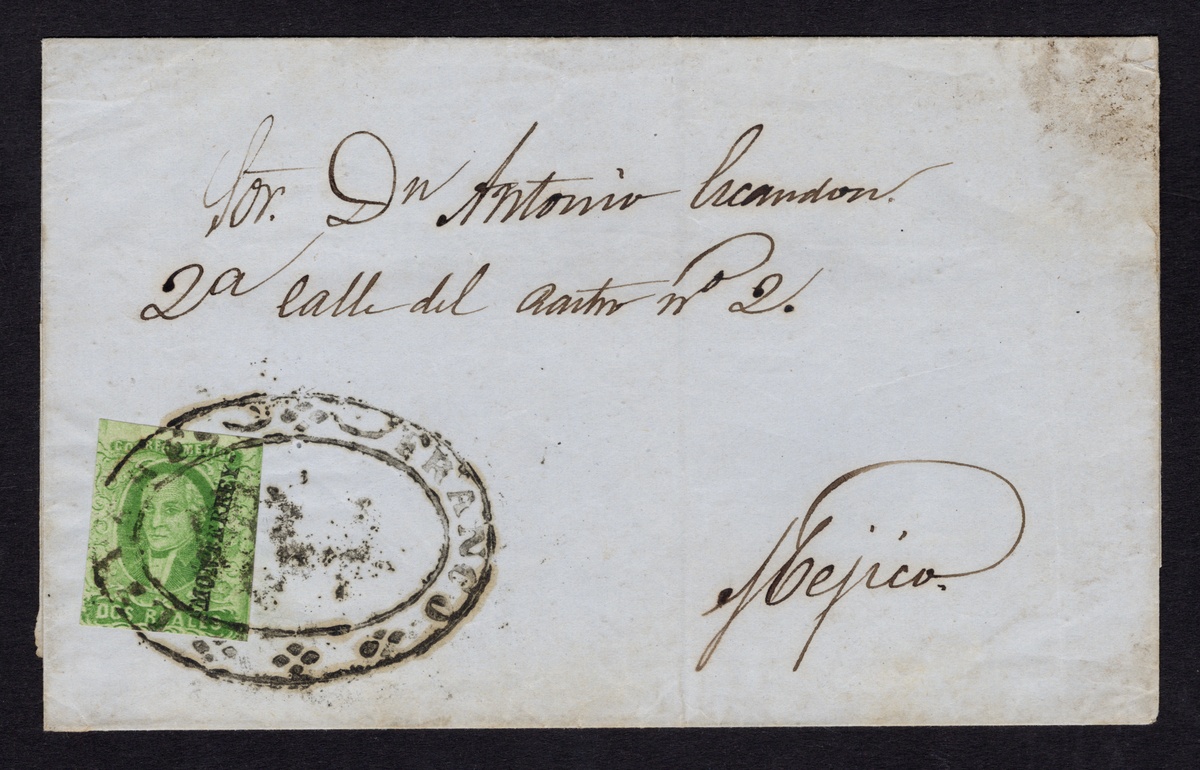 Sor. Dn Antonio Escandon.
2a Calle del nº 2.
Mejico.
CORREOS MEJICO
MONTERREY
DOS REALES
FRANCO